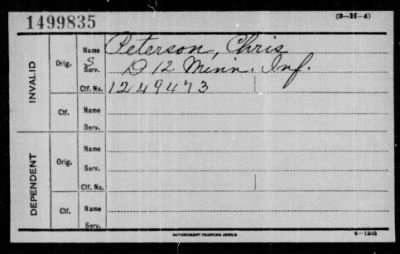 1499835
(3—H—4)
INVALID
Orig.
Name Peterson, Chris
S
Serv. D 12 Minn. Inf.
Ctf. No. 1249473
Ctf.
Name
Serv.
DEPENDENT
Orig.
Name
Serv.
Ctf. No.
Ctf.
Name
Serv.
GOVERNMENT PRINTING OFFICE